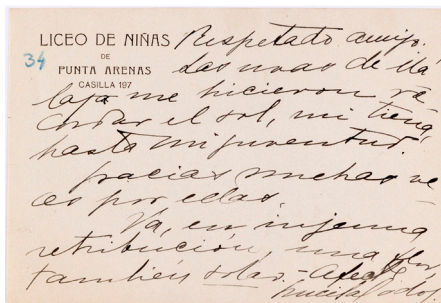 LICEO DE NIÑAS
DE
PUNTA ARENAS
CASILLA 197
34
Respetado amigo:
Las uvas de Ud.
caja me hicieron re
cordar el sol, mi tierra,
hasta mi juventud.
Gracias muchas ve
ces por ellas.
Va, en ingenua
retribución, una
también solar.-